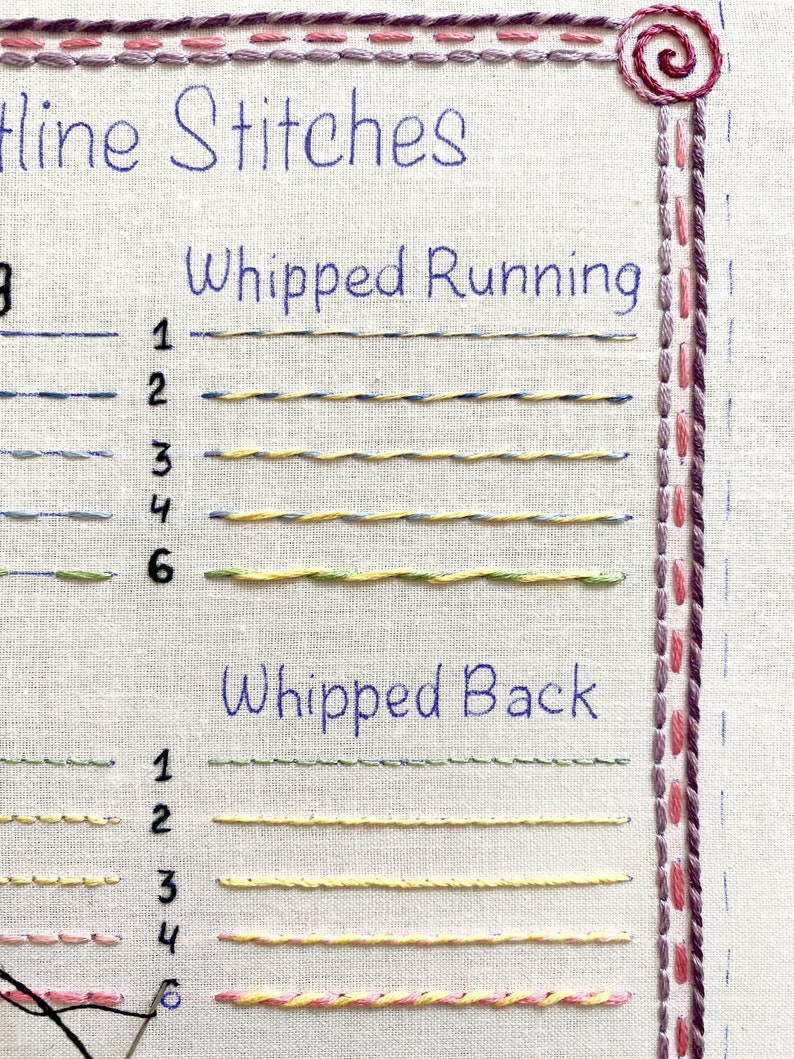 tline Stitches
g
Whipped Running
1
2
3
4
6
Whipped Back
1
2
3
4
6